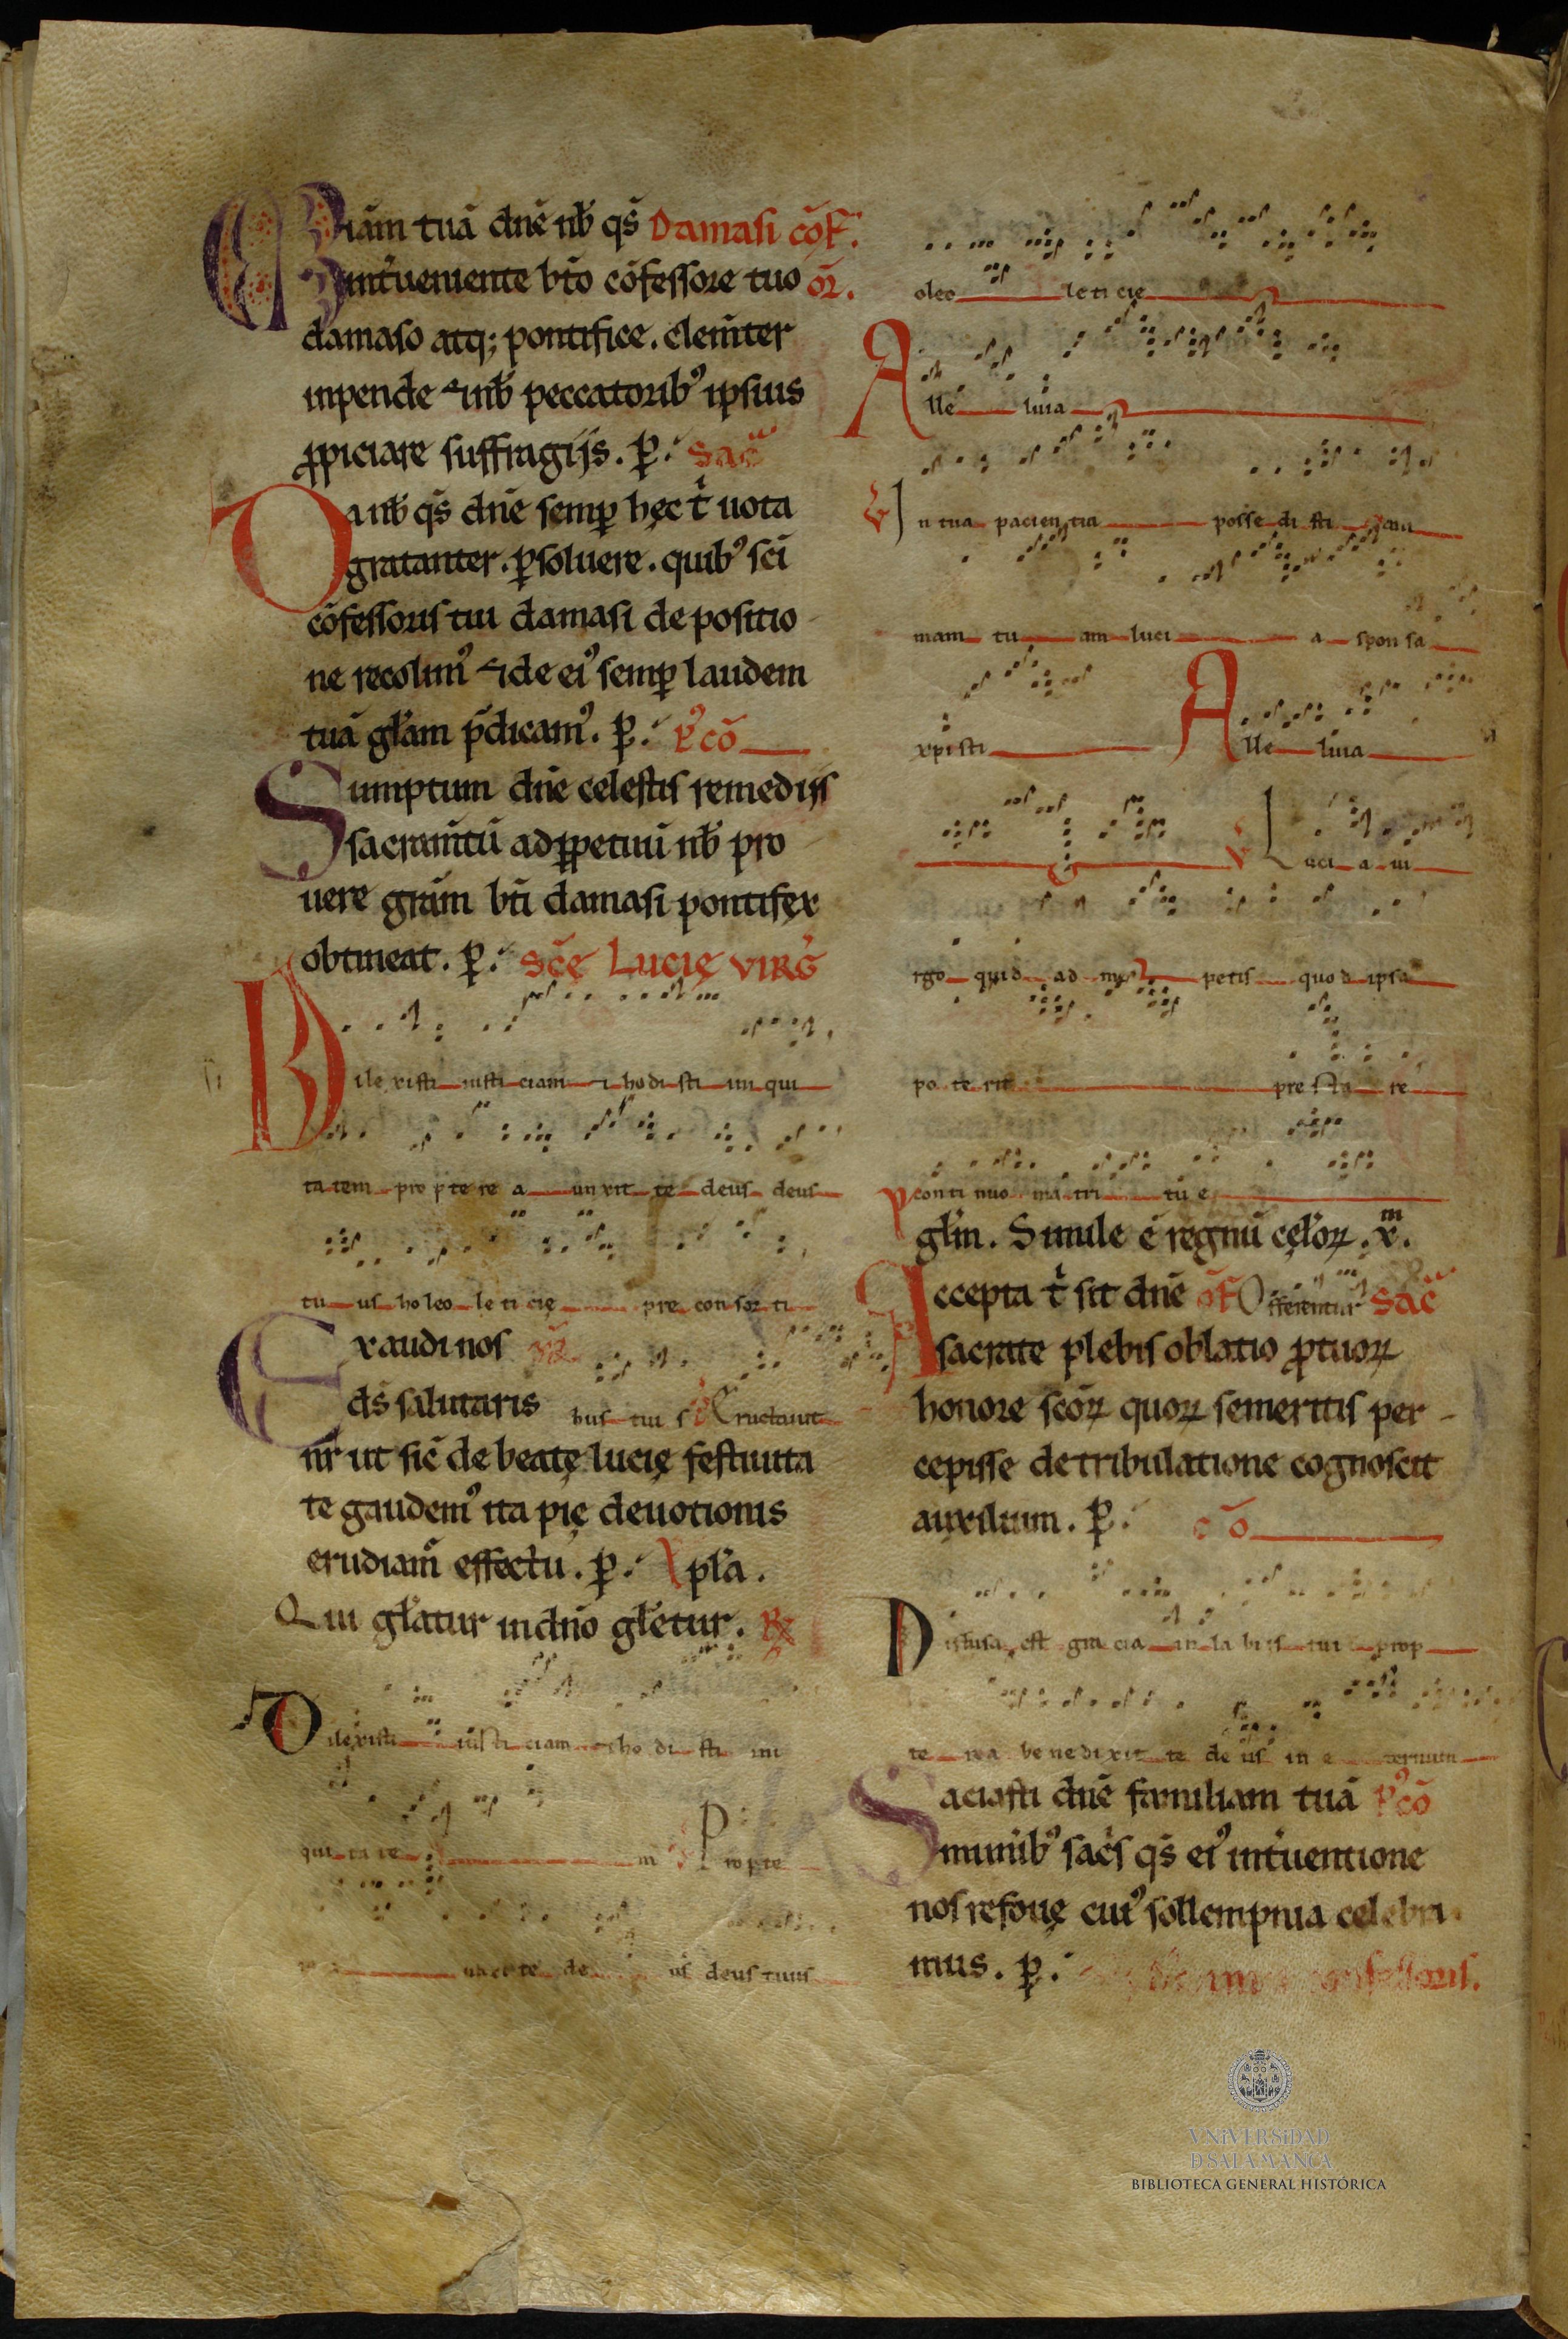 Miãm tuã dnẽ nƀ qs̃ Damasi cõf.
int̃ueniente bt̃o cõfessore tuo or̃.
damaso atq; pontifice. clem̃ter
inpende & inƀ peccatoribꝰ ipsius
ꝓpiciare suffragijs. ꝑ. Sac̃
Da nƀ qs̃ dnẽ semꝑ hęc t̃ uota
gratanter. ꝑsoluere. quibꝰ sc̃i
cõfessoris tui damasi depositio
ne recolimꝰ & de eiꝰ semꝑ laudem
tuã gl̃am p̃dicamꝰ. ꝑ. Pꝰcõ
Sumptum dnẽ celestis remedijs
sacram̃tũ adꝑpetuũ nƀ pro
uere gr̃am bt̃i damasi pontifex
obtineat. ꝑ. Sc̃ę Lucię virg̃
Dilexisti iusticiam & hodisti iniqui
tatem propterea unxit te deus deus
tuus holeo leticię pre consorti
Exaudi nos or̃
ds̃ salutaris bus tuis Eructauit
nr̃ ut sic̃ de beatę lucię festiuita
te gaudemꝰ ita pię deuotionis
erudiam̃ effectu. ꝑ. Epl̃a.
Qui gl̃atur in dño gl̃etur. R̃
Dilexisti iusticiam & hodisti ini
quitate m Propte
unxit te deus deus tuus
oleo leticie
Alleluia
V In tua paciencia possedisti am
mam tuam lucia sponsa
xp̃isti Alleluia
V Lucia ui
rgo quid ad me petis quod ipsa
poterit prestare
continuo matri tue
gl̃m. Simile ẽ regnũ cęloꝝ. x̃.
Accepta t̃ sit dnẽ of̃ Offerentur Sac̃
sacrate plebis oblatio ꝓ tuoꝝ
honore scõꝝ quoꝝ semeritis per-
cepisse de tribulatione cognoscit
auxilium. ꝑ. cõ
Difusa est gracia in labiis tui prop
terea benedixit te deus in eternum
Saciasti dnẽ familiam tuã Pꝰcõ
munibꝰ sac̃s qs̃ eiꝰ int̃uentione
nos refouę cuiꝰ sollempnia celebra
mus. ꝑ. confessoris.
VNiVERSiDAD
D SALAMANCA
BIBLIOTECA GENERAL HISTÓRICA